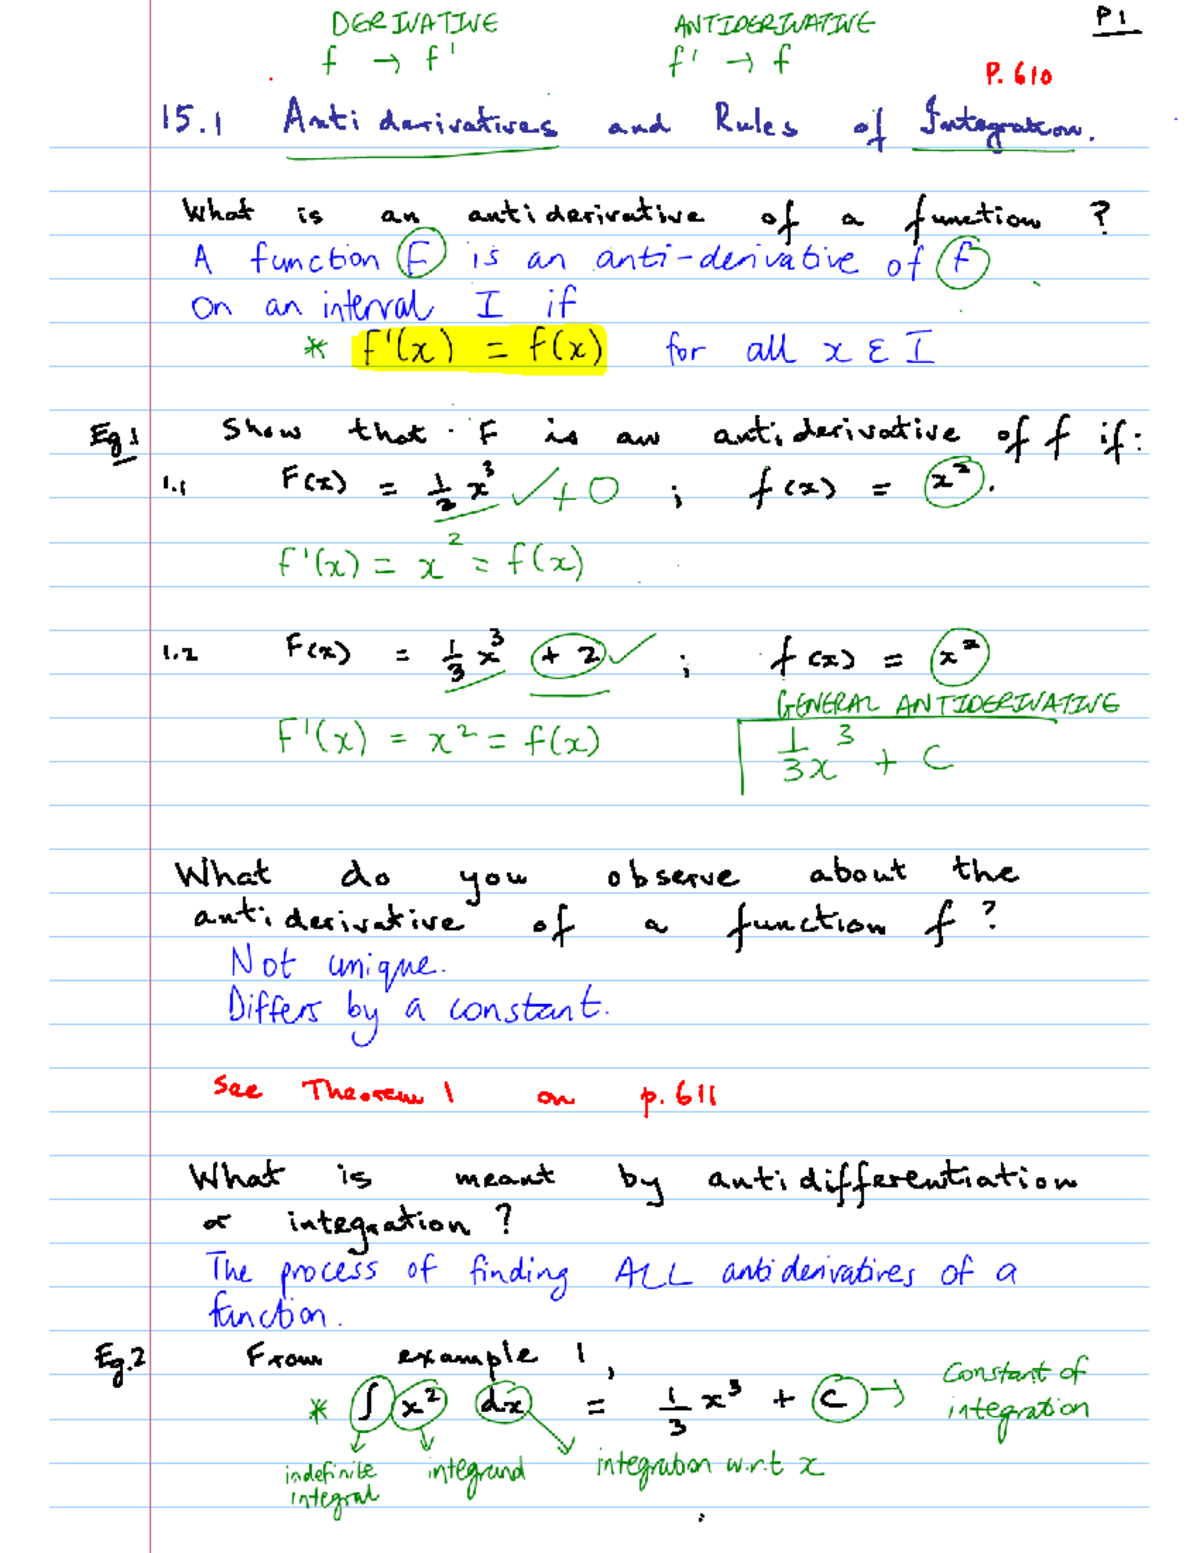 DERIVATIVE ANTIDERIVATIVE P1
f → f' f' → f
P. 610
15.1 Antiderivatives and Rules of Integration.
What is an antiderivative of a function ?
A function F is an anti-derivative of f
on an interval I if
* F'(x) = f(x) for all x ε I
Eg 1 Show that F is an antiderivative of f if:
1.1 F(x) = 1/3 x³ ✓ + 0 ; f(x) = x².
F'(x) = x² = f(x)
1.2 F(x) = 1/3 x³ + 2 ✓ ; f(x) = x²
GENERAL ANTIDERIVATIVE
F'(x) = x² = f(x) 1/3 x³ + C
What do you observe about the
antiderivative of a function f ?
Not unique.
Differs by a constant.
See Theorem 1 on p. 611
What is meant by antidifferentiation
or integration ?
The process of finding ALL antiderivatives of a
function.
Eg.2 From example 1,
* ∫ x² dx = 1/3 x³ + C → Constant of
integration
indefinite integrand integration w.r.t x
integral